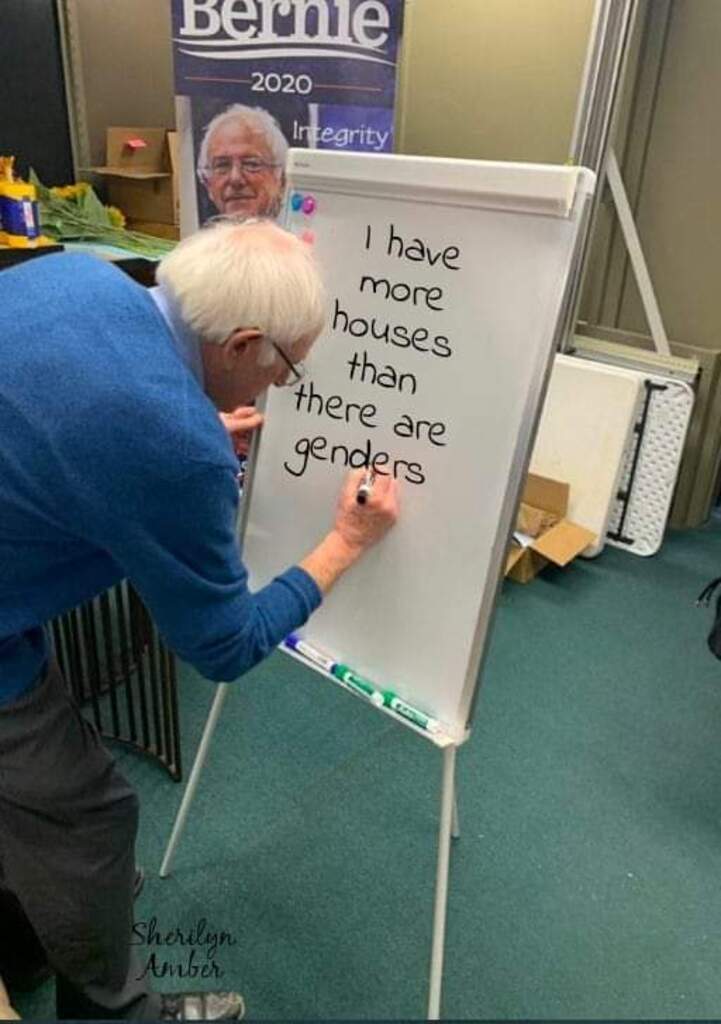 Bernie
2020
Integrity
I have
more
houses
than
there are
genders
Sherilyn
Amber